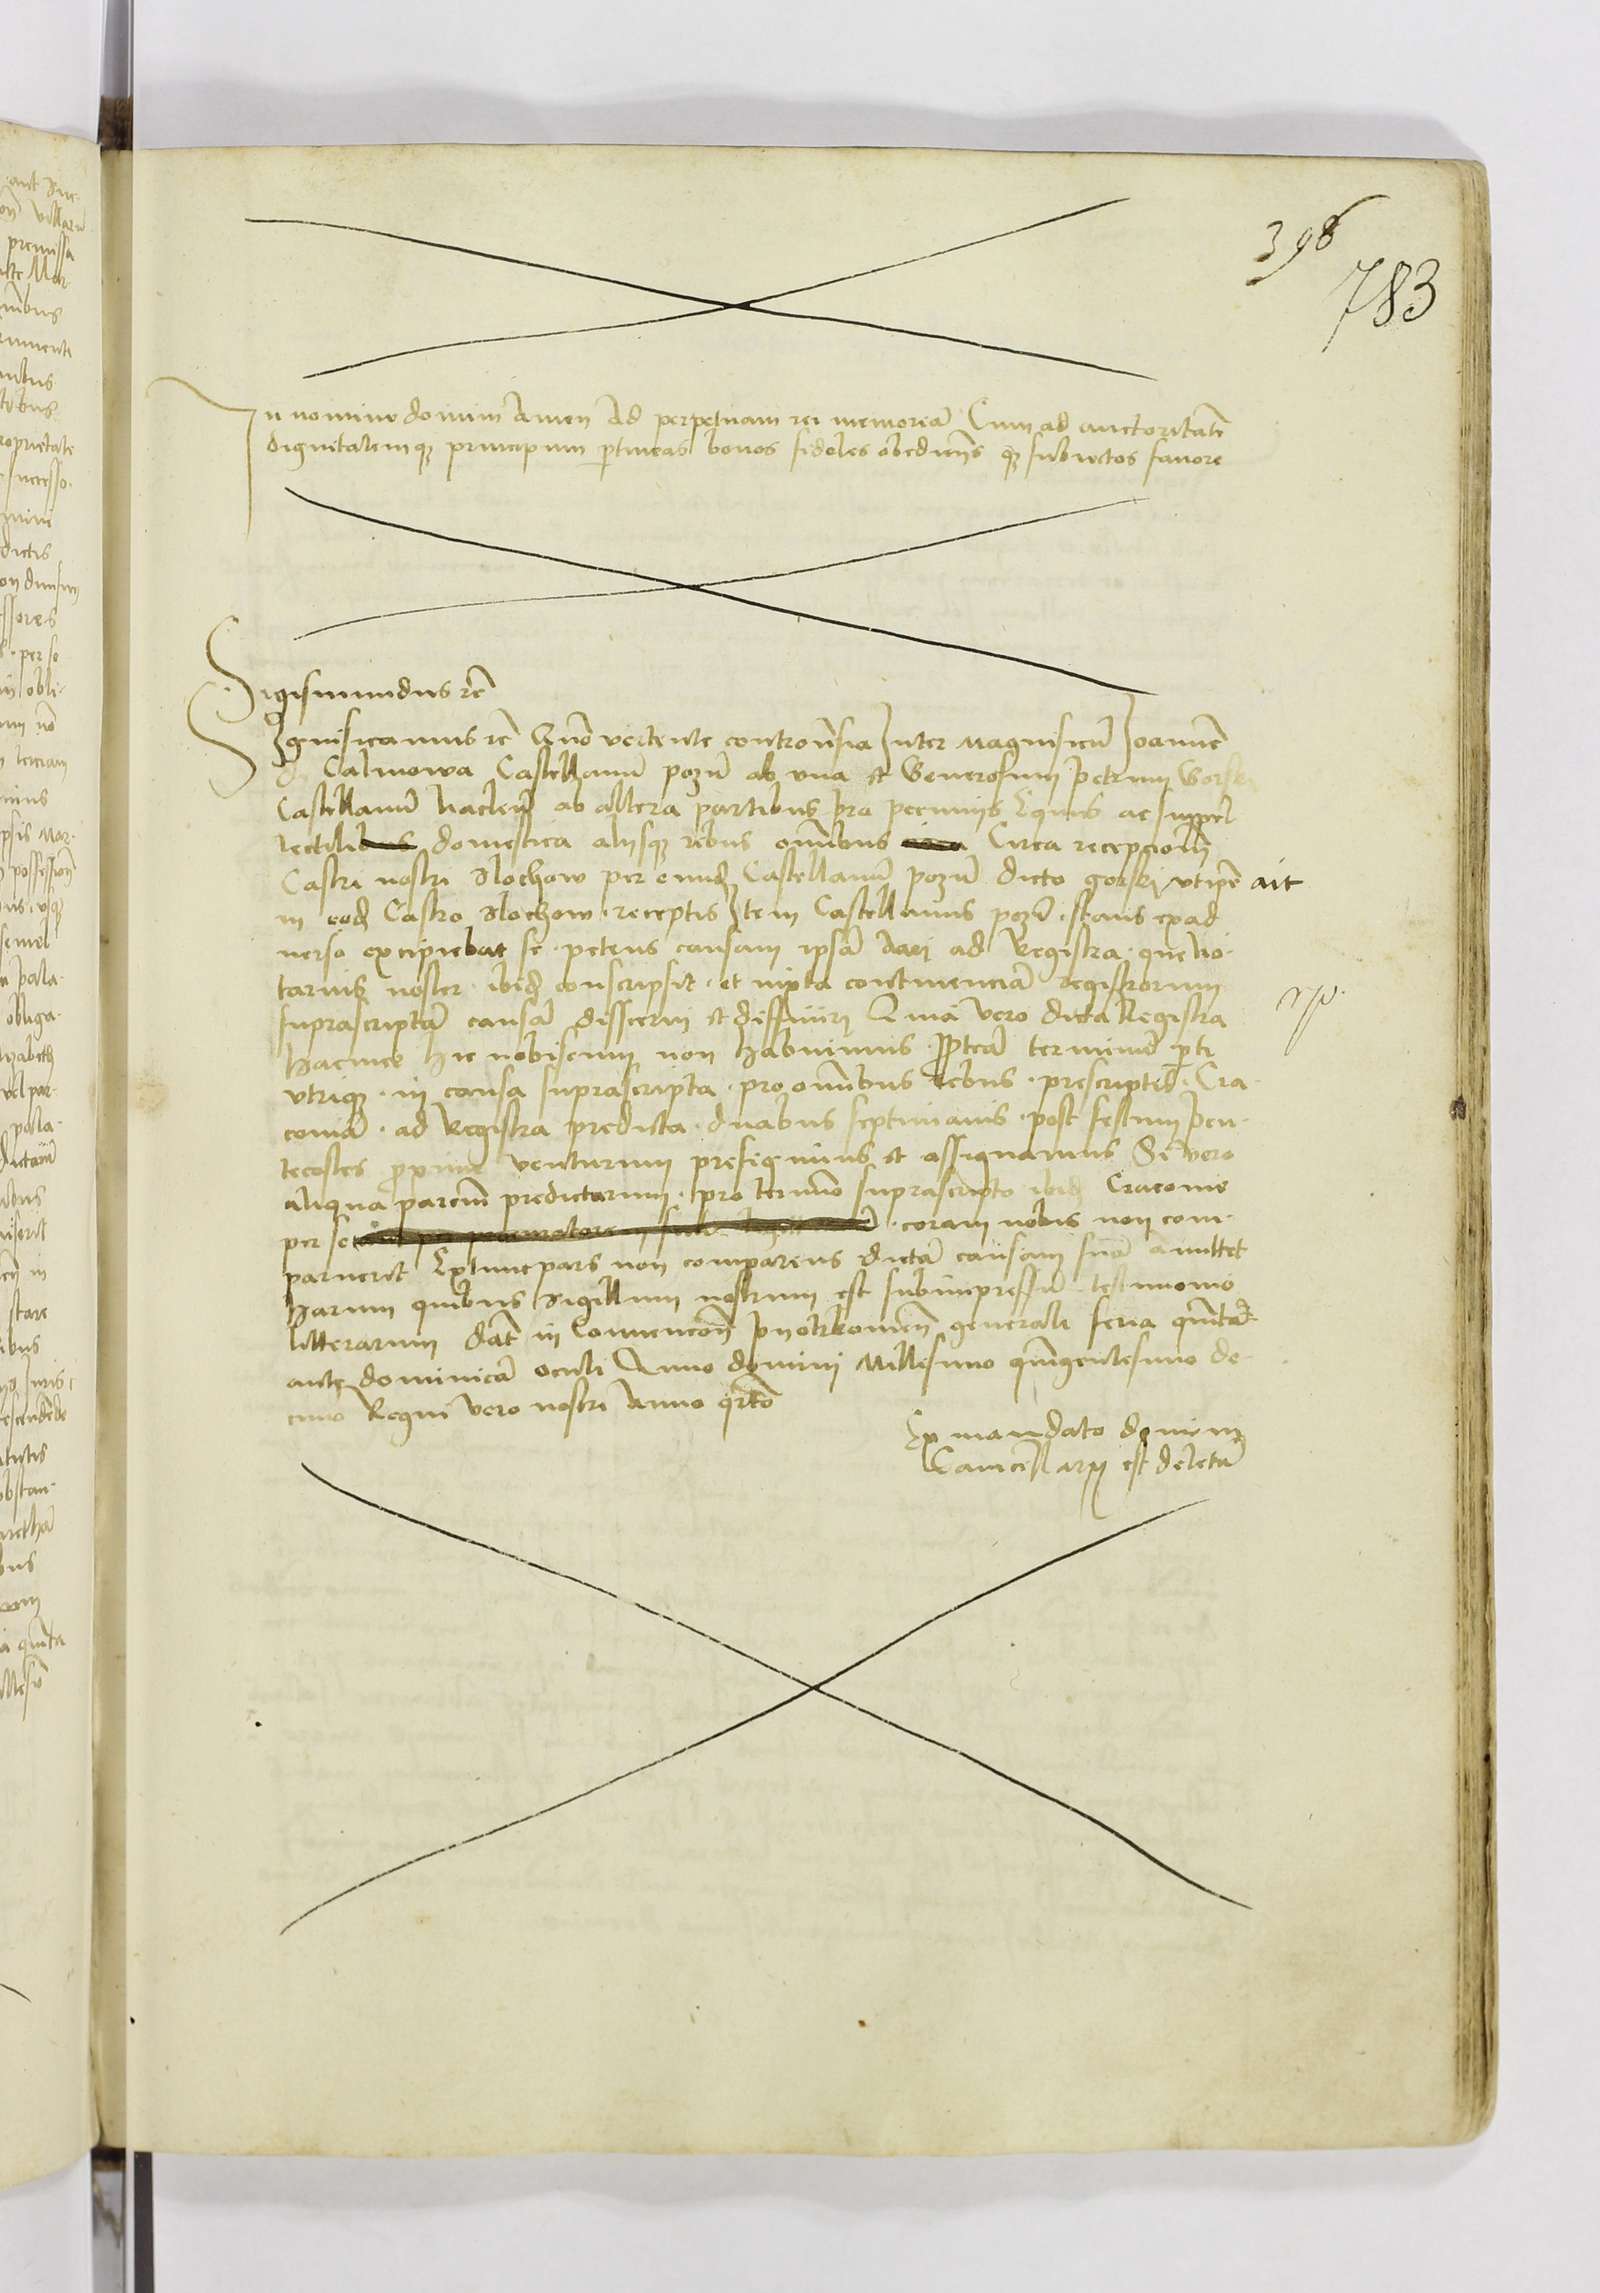 398
783
In nomine domini Amen Ad perpetuam rei memoriã Cum ad auctoritatẽ
dignitatemqz principum ptineas bonos fideles obediens qz subiectos favore
Sigismundus rc̃
Significamus rc̃ Quo vertente controũsia Inter Magnificũ Joannẽ
d Calmowa Castellanũ pozñ ab vna et Generosum petrum Gorski
Castellanũ nacleñ ab altera partibus pro pecuniis Equis ac suppel
lectili domestica aliisqz rebus omĩbus Circa recepcionẽ
Castri nostri Slochow per eundẽ Castellanũ pozñ dicto gorski vt ipse ait
in eodẽ Castro Slochow receptis Item Castellanus pozñ stans ex ad
verso excipiebat se petens causam ipsã dari ad Registra que no-
tarius noster ibidẽ conscripsit et iuxta continenciã registrorum
suprascriptã causã discerni et diffiniri Quia vero dicta Registra
hactenus hic nobiscum non habuimus Propterea terminũ pti
vtriqz in causa suprascripta pro omĩbus rebus prescriptis Cra-
coviã ad Registra predicta duabus septimanis post festum pen-
tecostes proxime venturum prefigimus et assignamus Si vero
aliqua parciũ predictarum pro termĩo suprascripto ibidẽ Cracovie
per se coram nobis non com-
paruerit Extunc pars non comparens dictã causam suã amittet
Harum quibus Sigillum nostrum est subimpressũ testimonio
litterarum Dat̃ in Convencõn Pyotrkovieñ generali feria quinta
ante dominicã oculi Anno domini Millesimo quingentesimo de-
cimo Regni vero nostri Anno qrto
Ex mandato domini
Cancellarij est deletũ